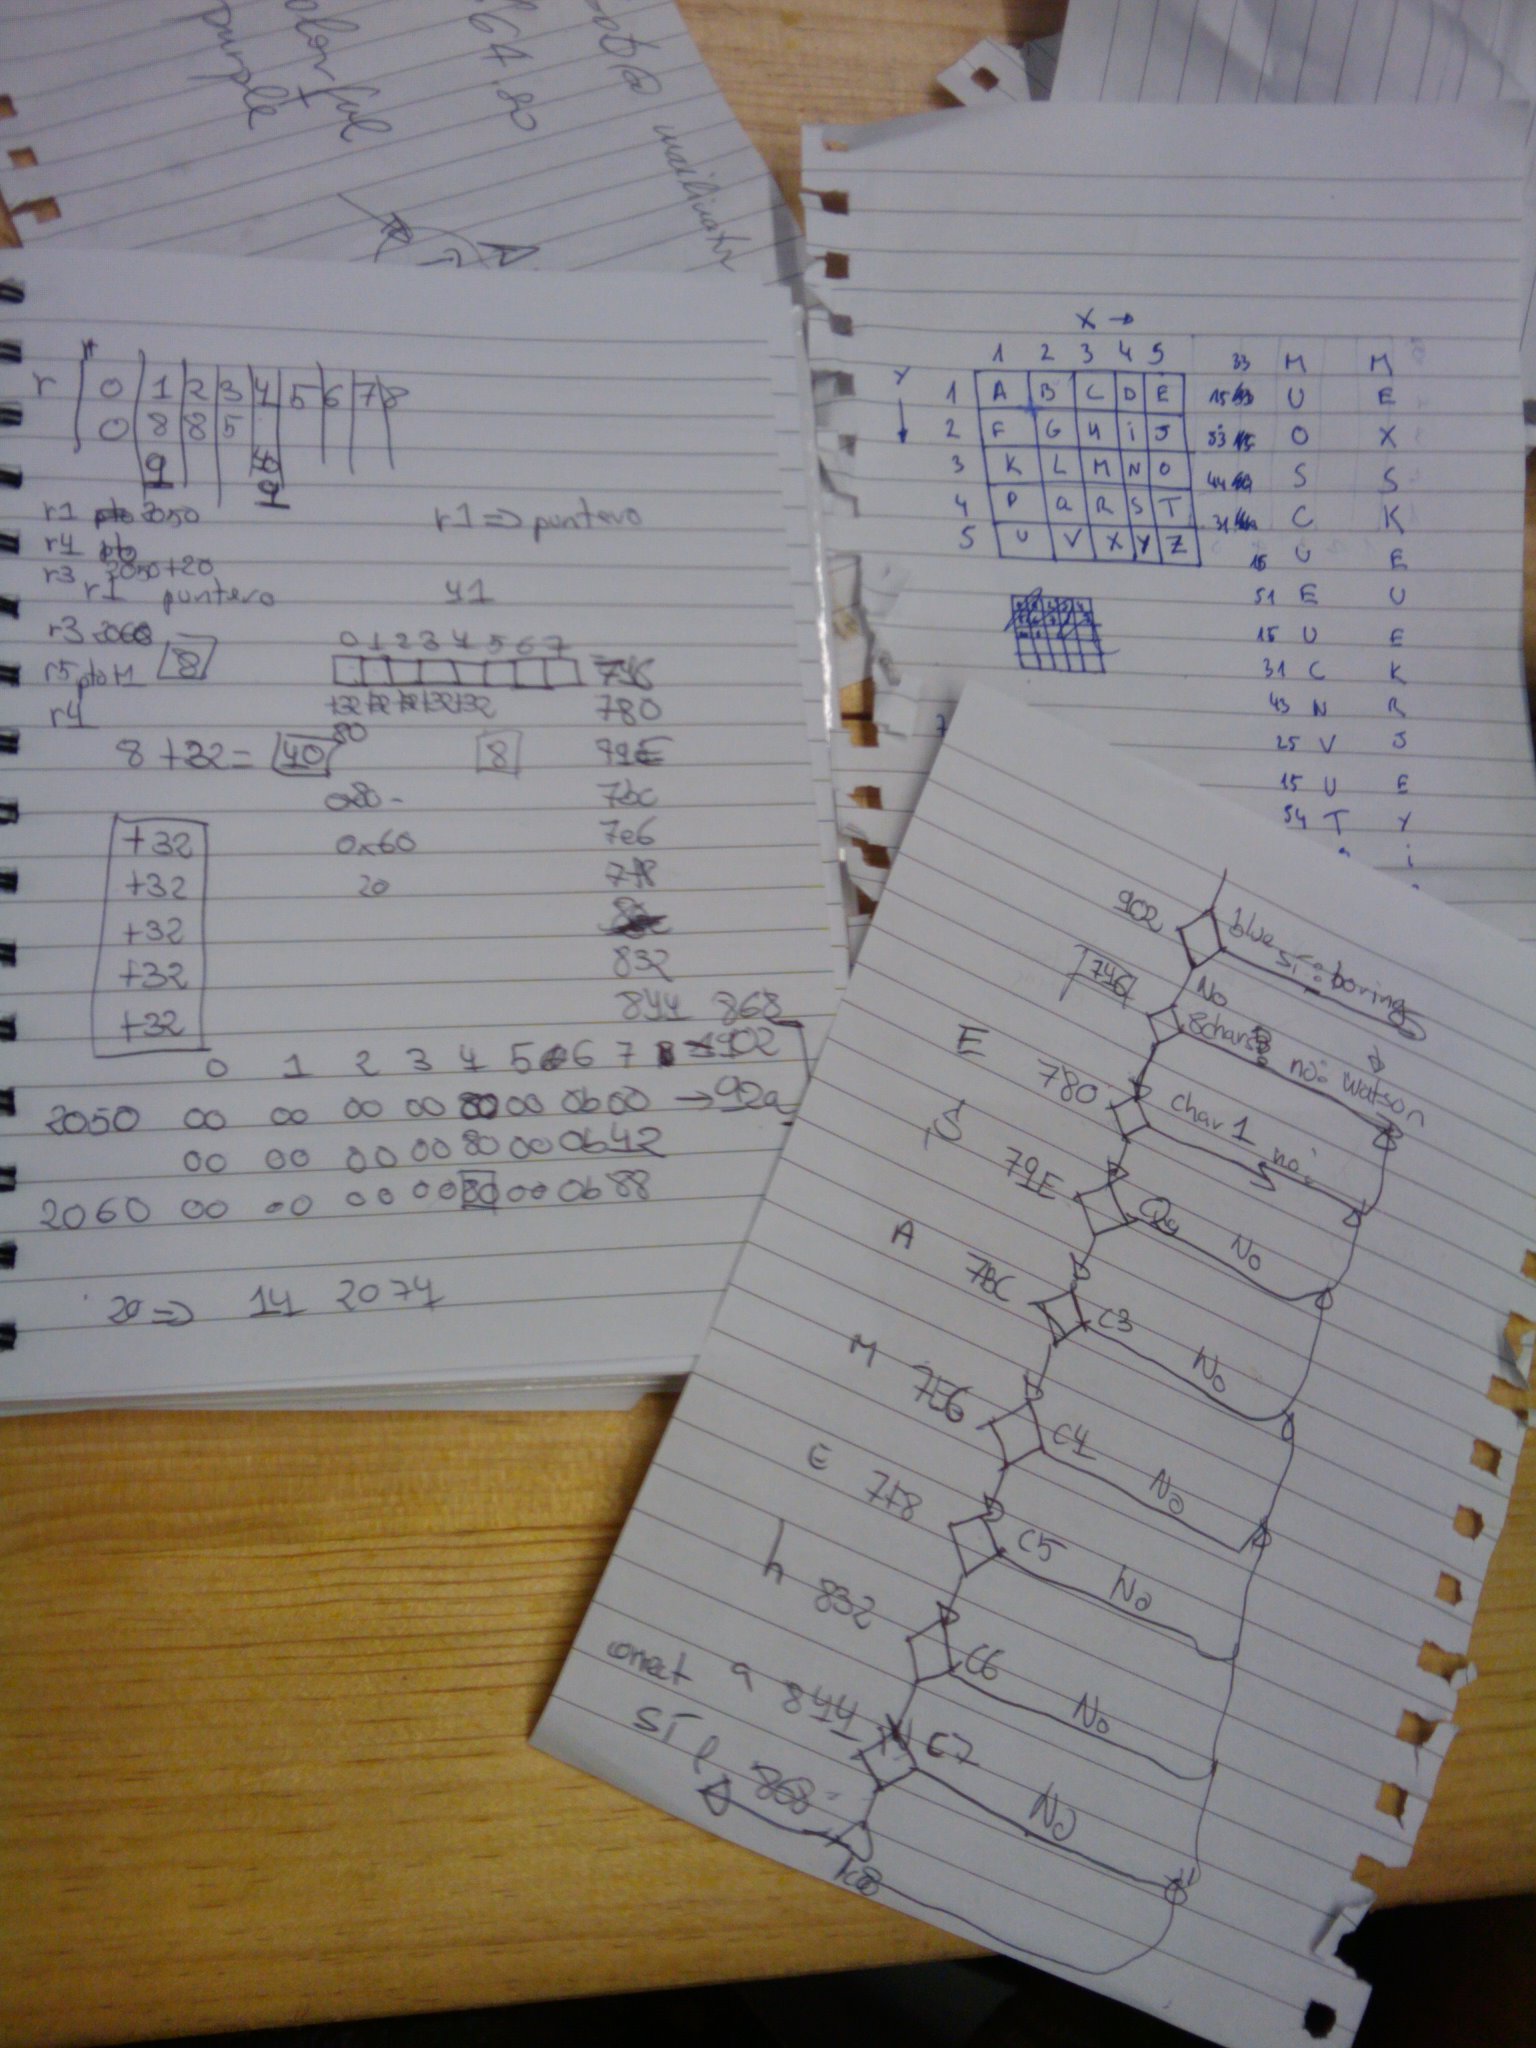 67.80
purple
r 0 1 2 3 4 5 6 7 8
0 8 8 5
9
r1 2050
r1 => puntero
r4
r3 2050+20
r1 puntero
41
r3 2060
r5 pto M 8
0 1 2 3 4 5 6 7
746
r4
+32 +32 +32 +32 +32
780
80
8 +32 = 40
8
79E
0x80-
7bc
+32
0x60
7e6
+32
20
7f8
+32
+32
832
+32
844 868
0 1 2 3 4 5 6 7 → 902
2050 00 00 00 00 80 00 0b 00 → 92a
00 00 00 00 80 00 0b 42
2060 00 00 00 00 80 00 0b 88
20 => 14 2074
X →
1 2 3 4 5
Y
1 A B C D E
2 F G H i J
3 K L M N O
4 P Q R S T
5 U V X Y Z
33 M M
15 U E
53 O X
44 S S
31 C K
15 U E
51 E U
15 U E
31 C K
43 N R
25 V J
15 U E
54 T Y
i
902 blue si: boring
746 No
8chars no: watson
E 780 char 1 no:
S 79E No
A 7BC C3 No
M 7E6 C4 No
E 7F8 C5 No
h 832 C6 No
conect a 844 C7 No
si 868